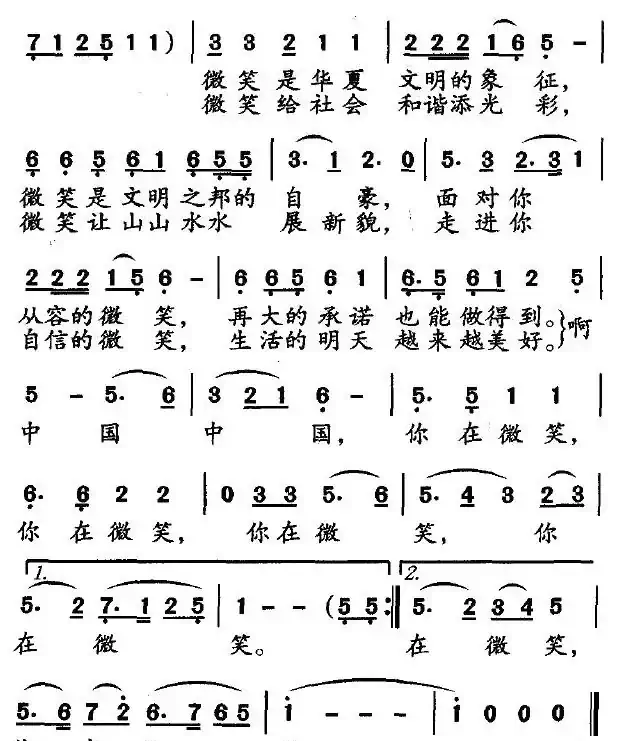 7125 11) | 3 3 2 1 1 | 2 22 16 5 - |
微笑是华夏 文明的象 征，
微笑给社会 和谐添光 彩，
6 6 5 61 655 | 3. 1 2. 0 | 5. 3 2.3 1 |
微笑是文明之邦的 自 豪， 面对你
微笑让山山水水 展新貌， 走进你
2 22 15 6 - | 6 65 6 1 | 6.5 61 2 5 |
从容的微 笑， 再大的承诺 也能做得到。啊
自信的微 笑， 生活的明天 越来越美好。
5 - 5. 6 | 3 21 6 - | 5. 5 1 1 |
中 国 中 国， 你在微笑，
6. 6 2 2 | 0 33 5. 6 | 5. 4 3 23 |
你在微笑， 你在微 笑， 你
1. 2.
5. 2 7.1 25 | 1 - - (55 :|| 5. 2 34 5 |
在 微 笑。 在 微笑，
5. 6 7 2 6. 7 65 | i - - - | i 0 0 0 ||